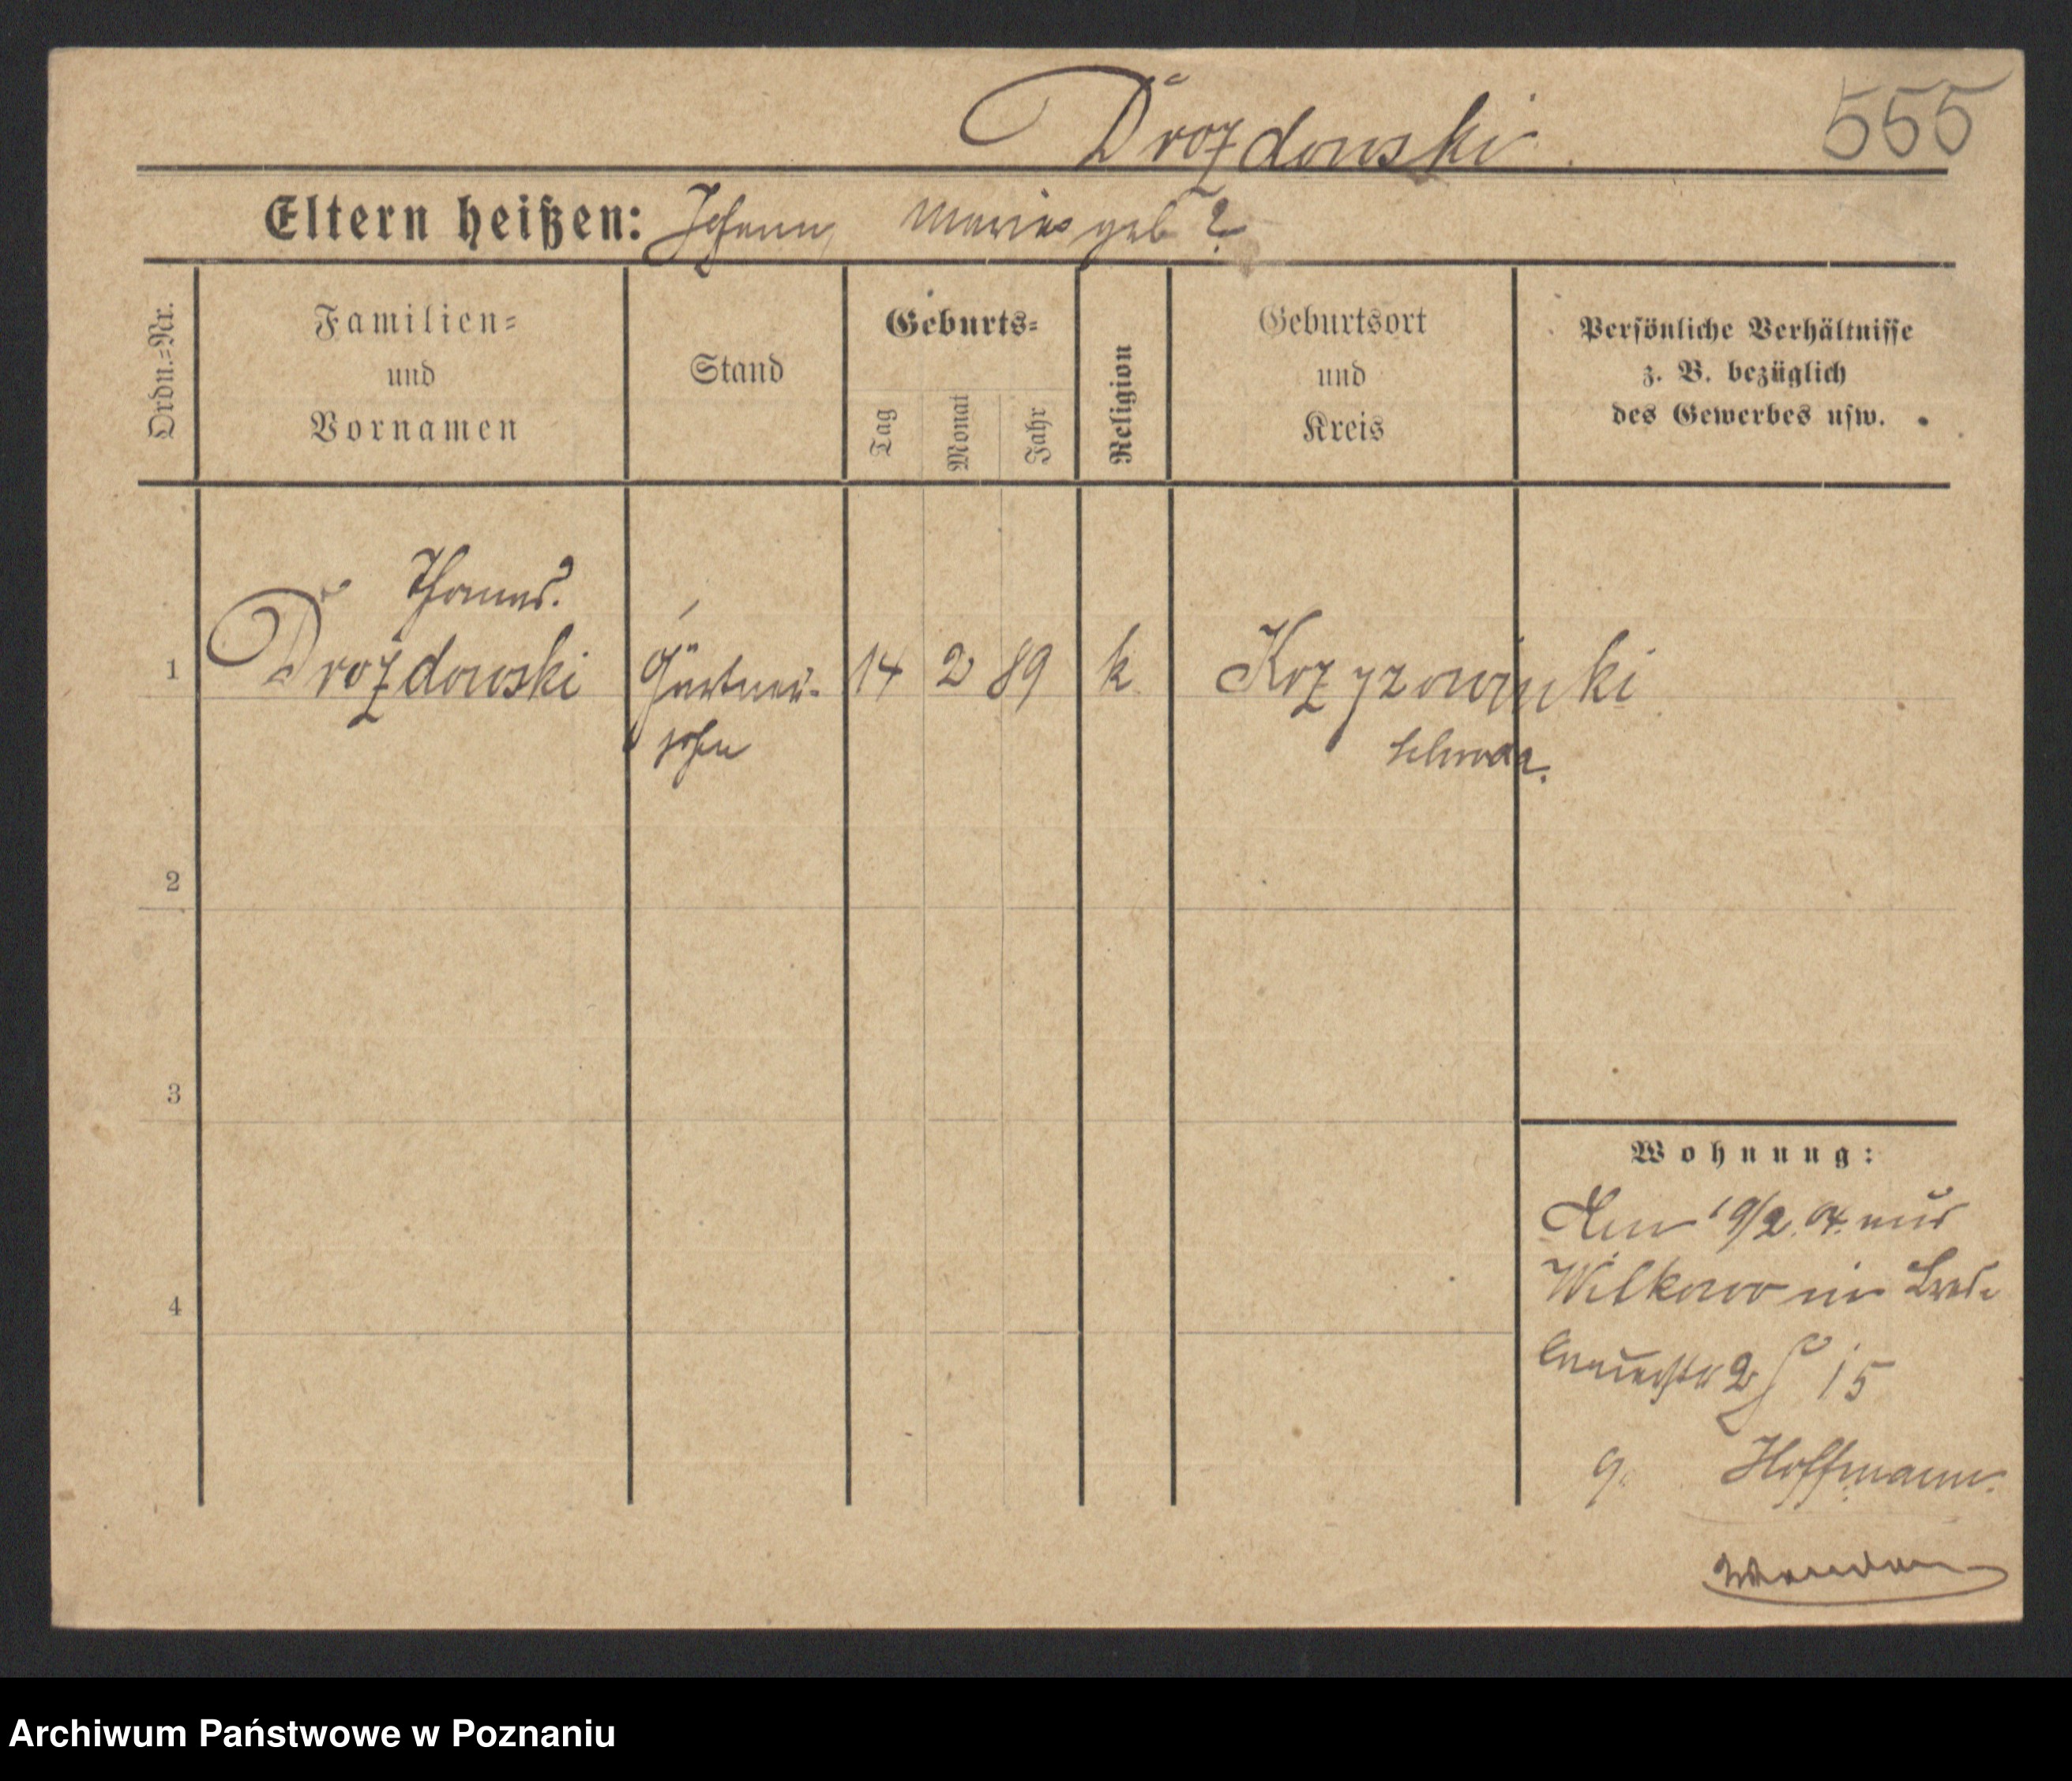 Drozdowski.
555
Eltern heißen: Johann, Maria geb ?
Ordn.=Nr.
Familien=
und
Vornamen
Stand
Geburts=
Tag
Monat
Jahr
Religion
Geburtsort
und
Kreis
Persönliche Verhältnisse
z. B. bezüglich
des Gewerbes usw.
Thomas.
1 Drozdowski Gärtner- 14 2 89 k
sohn
Schroda.
2
3
4
Wohnung:
Den 19/2. 04. aus
Wilkowo in
2 15
Hoffmann.
Archiwum Państwowe w Poznaniu